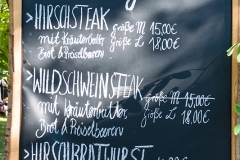 >HIRSCHSTEAK Größe M 15,00€
mit Kräuterbutter Größe L 18,00€
Brot & Preiselbeeren
>WILDSCHWEINSTEAK
mit Kräuterbutter Größe M 15,00€
Brot & Preiselbeeren Größe L 18,00€
>HIRSCHBRATWURST